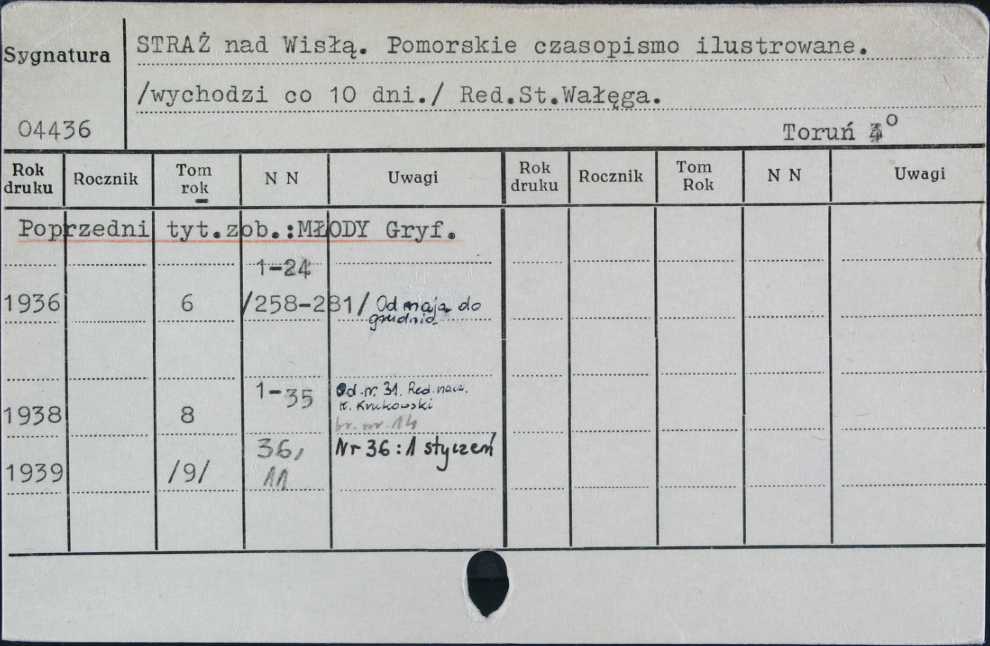 Sygnatura
STRAŻ nad Wisłą. Pomorskie czasopismo ilustrowane.
/wychodzi co 10 dni./ Red.St.Wałęga.
04436
Toruń 4°
Rok druku Rocznik Tom rok N N Uwagi Rok druku Rocznik Tom Rok N N Uwagi
Poprzedni tyt.zob.:MŁODY Gryf.
1-24
1936 6 /258-281/ Od maja do
grudnia
1-35 Od nr. 31. Red. nacz.
K. Krukowski
1938 8 br. nr. 14
36, Nr 36 : 1 styczeń
1939 /9/ 11